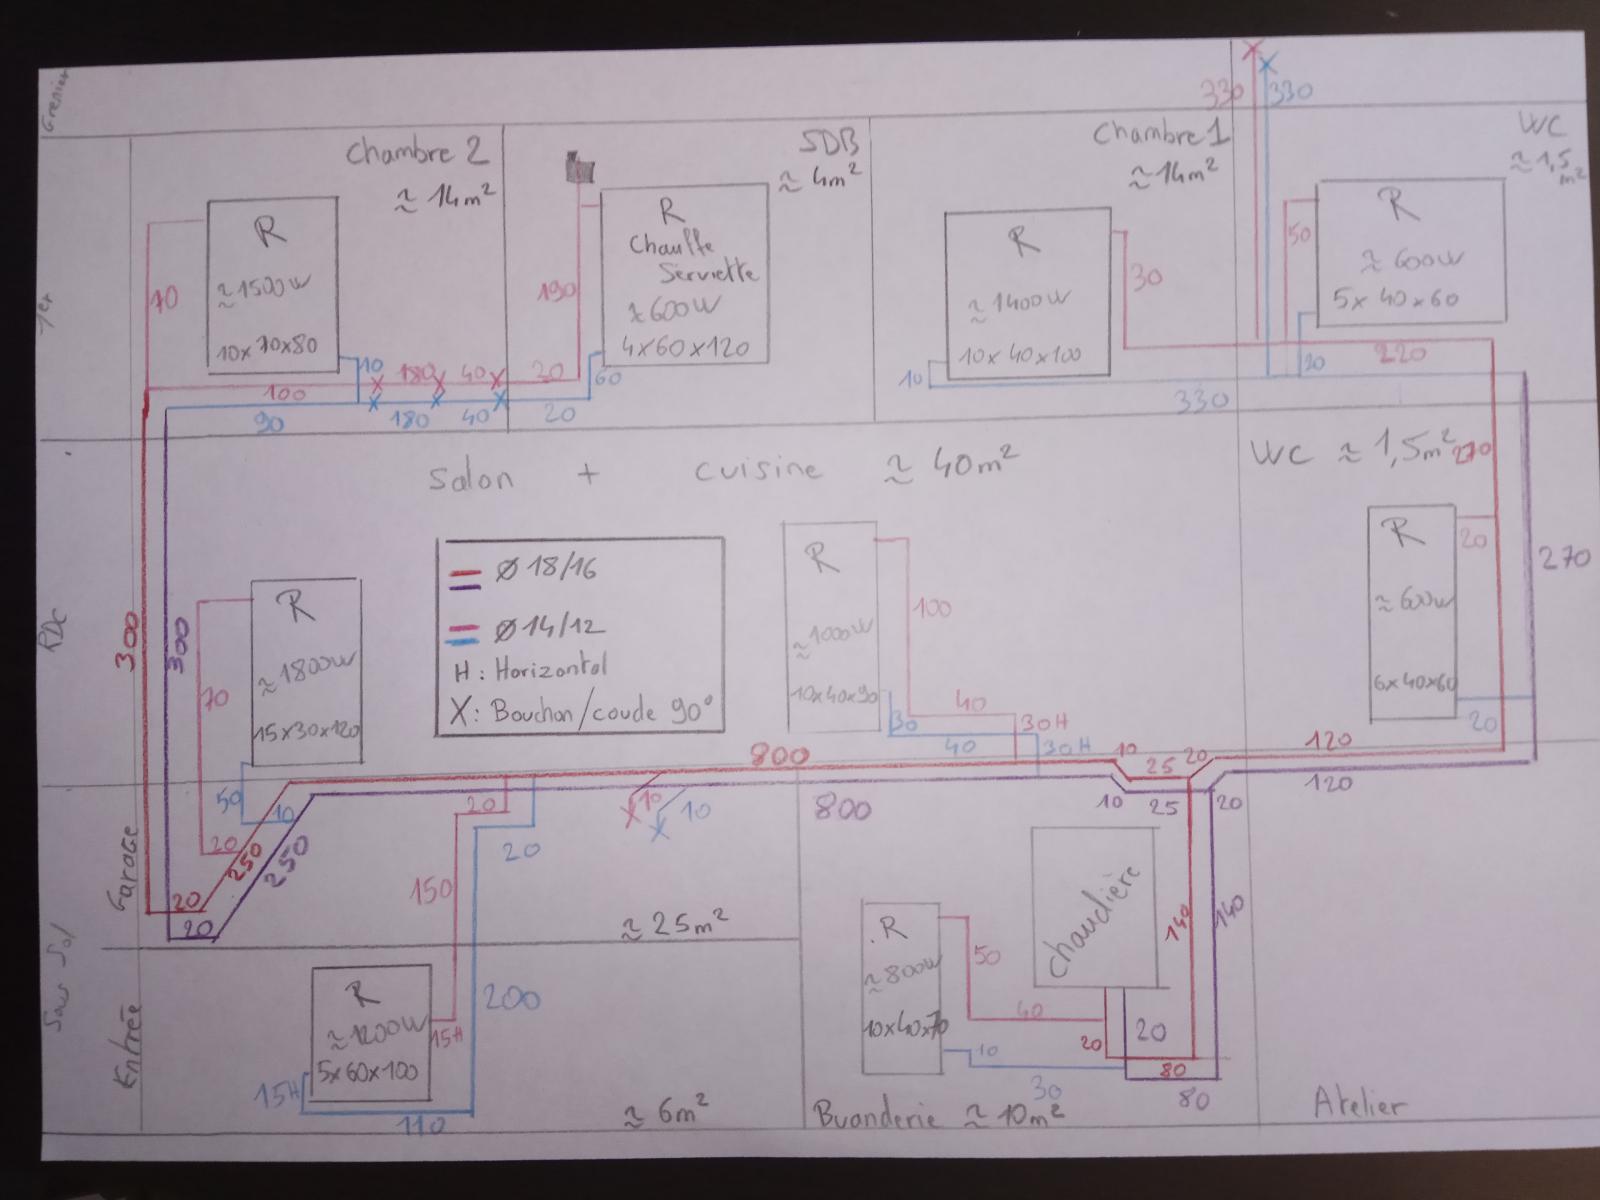 Grenier
330
330
Chambre 2
≈ 14m²
SDB
≈ 4m²
Chambre 1
≈ 14m²
WC
≈ 1,5
m²
1er
70
R
≈1500W
10x70x80
10
100
90
180
40
180
40
20
20
190
R
Chauffe
Serviette
≈600W
4x60x120
60
R
≈1400W
10x40x100
30
10
330
50
R
≈ 600W
5x 40x60
20
220
RDC
Salon + cuisine ≈ 40m²
WC ≈ 1,5m²
270
270
300
300
70
R
≈1800W
15x30x120
50
10
20
250
250
20
20
Ø 18/16
Ø 14/12
H : Horizontal
X : Bouchon/coude 90°
R
≈1000W
10x40x90
100
40
30H
30
40
30H
R
≈600W
6x40x60
20
20
800
800
10
25
20
120
10
25
20
120
Sous Sol
Garage
20
20
10
10
150
200
≈ 25m²
Entrée
R
≈1200W
5x60x100
15H
15H
110
≈ 6m²
Chaudière
R
≈800W
10x40x70
50
40
10
30
20
20
80
80
140
140
Buanderie ≈ 10m²
Atelier